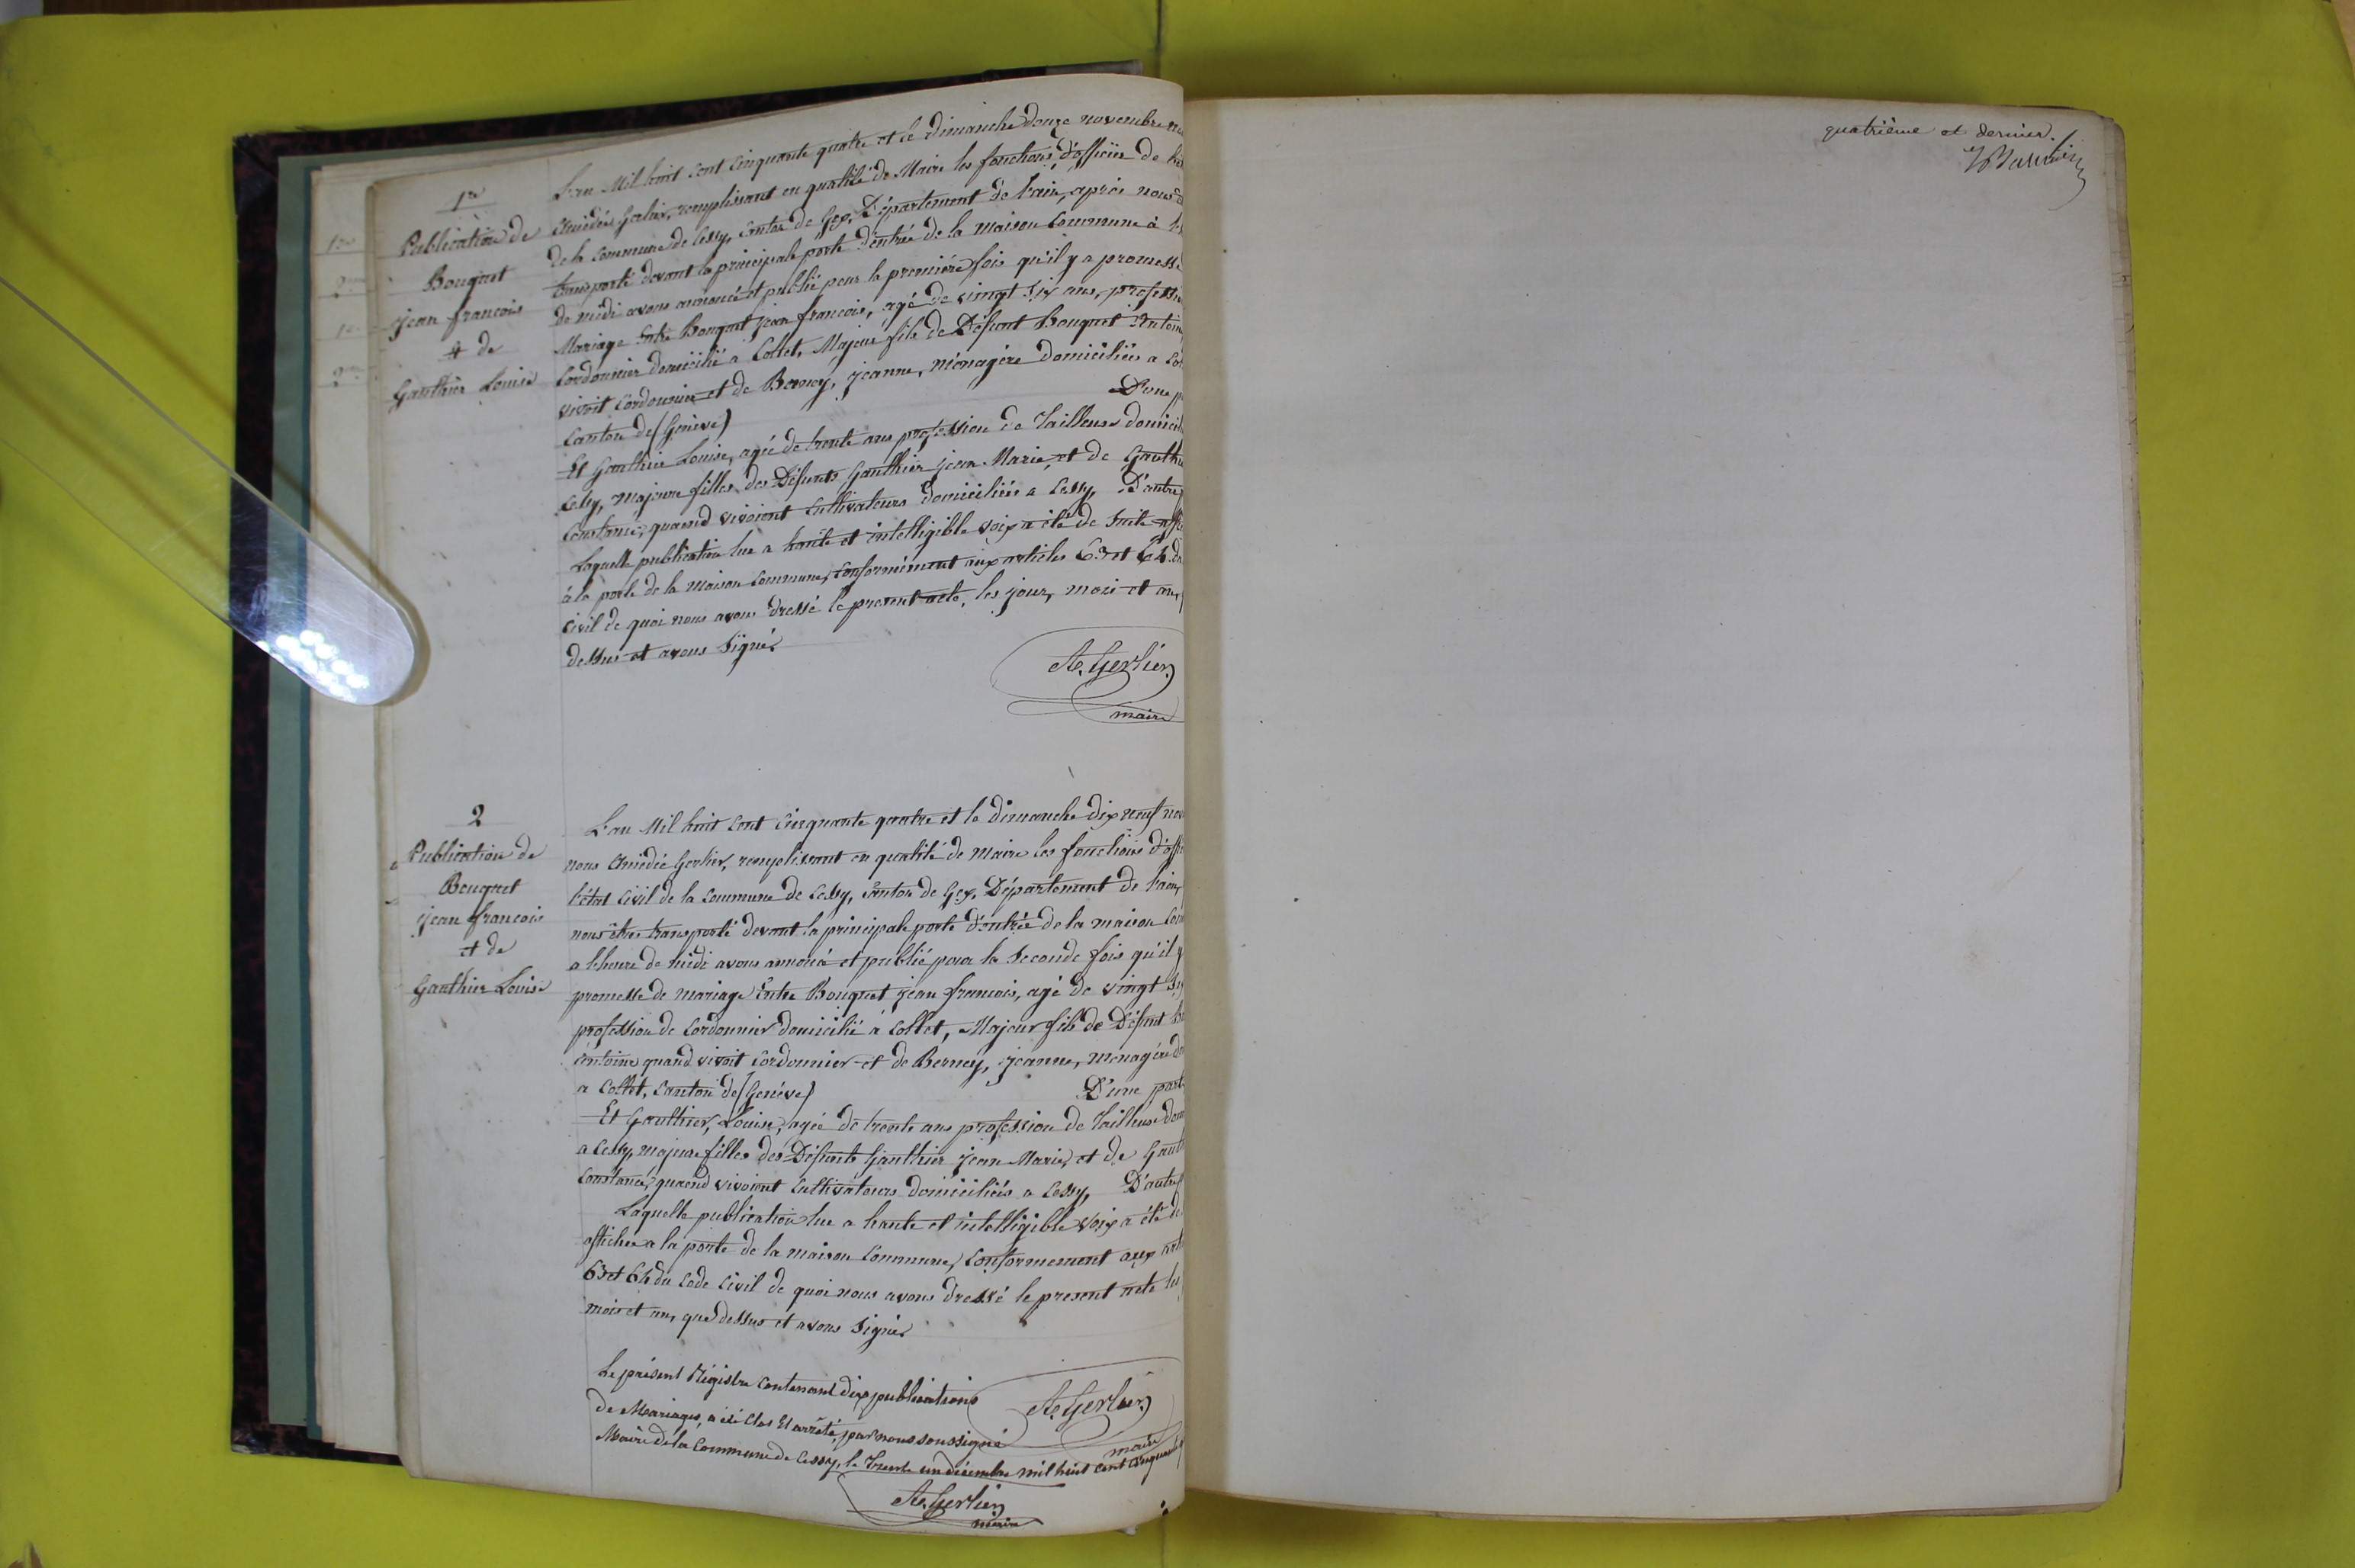 1re
Publication de
Bouquet
jean francois
& de
Gauthier Louise
L'an Mil huit cent cinquante quatre et le dimanche douze novembre
Amédée Gerlier, remplissant en qualité de Maire les fonctions d'officier de
de la commune de Cessy, canton de Gex, Département de l'ain, après nous
transporté devant la principale porte d'entrée de la maison Commune à
de midi avons annoncé et publié pour la première fois qu'il y a promesse
Mariage Entre Bouquet jean francois, agé de vingt six ans, profession
Cordonnier domicilié a Collet, Majeur fils de Défunt Bouquet Antoine
vivoit Cordonnier et de Berney, jeanne, ménagère domiciliée a
Canton de (Genève) D'une
Et Gauthier Louise, agée de trente ans profession de Tailleuse
Cessy, majeure filles des Défunts Gauthier jean Marie, et de
Constance, quand vivoient Cultivateurs domiciliés a Cessy, D'autre
Laquelle publication lue a haute et intelligible voix a été de suite
à la porte de la maison Commune, conformément aux articles 63 et 64
Civil de quoi nous avons dressé le present acte, les jour, mois et an,
dessus et avons Signé.
A. Gerlier
maire
2
Publication de
Bouquet
jean francois
et de
Gauthier Louise
L'an Mil huit cent Cinquante quatre et le Dimanche dix neuf
nous Amédée Gerlier, remplissant en qualité de Maire les fonctions
l'état Civil de la Commune de Cessy, Canton de Gex, Département de l'ain,
nous être transporté devant la principale porte d'entrée de la maison
a l'heure de midi avons annoncé et publié pour la Seconde fois qu'il y
promesse de mariage Entre Bouquet jean francois, agé de vingt
profession de Cordonnier domicilié à Collet, Majeur fils de Défunt
Antoine quand vivoit Cordonnier et de Berney, jeanne, ménagère
a Collet, Canton de (Genève) D'une part
Et Gauthier, Louise, agée de trente ans profession de Tailleuse
a Cessy, majeure filles des Défunts Gauthier jean Marie, et de
Constance, quand vivoient Cultivateurs domiciliés a Cessy, D'autre
Laquelle publication lue a haute et intelligible voix a été
affichée a la porte de la maison Commune, Conformement aux
63 et 64 du Code Civil de quoi nous avons dressé le present acte les
mois et an, que dessus et avons Signé.
Le présent Régistre contenant dix publications
de Mariages, a été Clos Et arrêté, par nous soussigné
Maire de la Commune de Cessy, le Trente un décembre mil huit cent
A. Gerlier
maire
A. Gerlier
maire
quatrième et dernier.